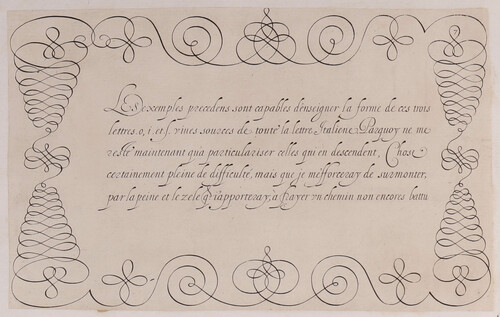 LEs exemples precedens sont capables d'enseigner la forme de ces trois
lettres. o, i, et f. vives sources de toute la lettre Italiene Parquoy ne me
reste maintenant qu'a particulariser celles qui en descendent, Chose
certainement pleine de difficulté, mais que je m'efforceray de surmonter,
par la peine et le zele q j'apporteray, a frayer vn chemin non encores battu